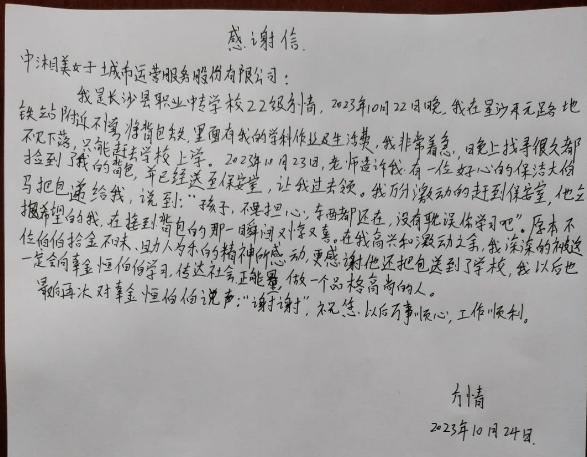 感谢信
中湘美好城市运营服务股份有限公司：
我是长沙县职业中专学校22级方情，2023年10月22日晚，我在星沙开元路地
铁站附近不慎将背包丢失，里面有我的学科作业及生活费，我非常着急，当晚上找寻很久都
不见下落，只能赶去学校上学。2023年10月23日，老师告诉我，有一位好心的保洁大伯
捡到了我的背包，并已经送至保安室，让我过去领。我万分激动的赶到保安室，他立
马把包递给我，说到：“孩子，不要担心，东西都还在，没有耽误你学习吧”。原本不
抱希望的我，在接到背包的那一瞬间又惊又喜。在我高兴和激动之余，我深深的被这
位伯伯拾金不昧、助人为乐的精神所感动，更感谢他还把包送到了学校，我以后也
一定会向辜金恒伯伯学习，传达社会正能量，做一个品格高尚的人。
最后再次对辜金恒伯伯说声：“谢谢”，祝您以后万事顺心，工作顺利。
方情
2023年10月24日